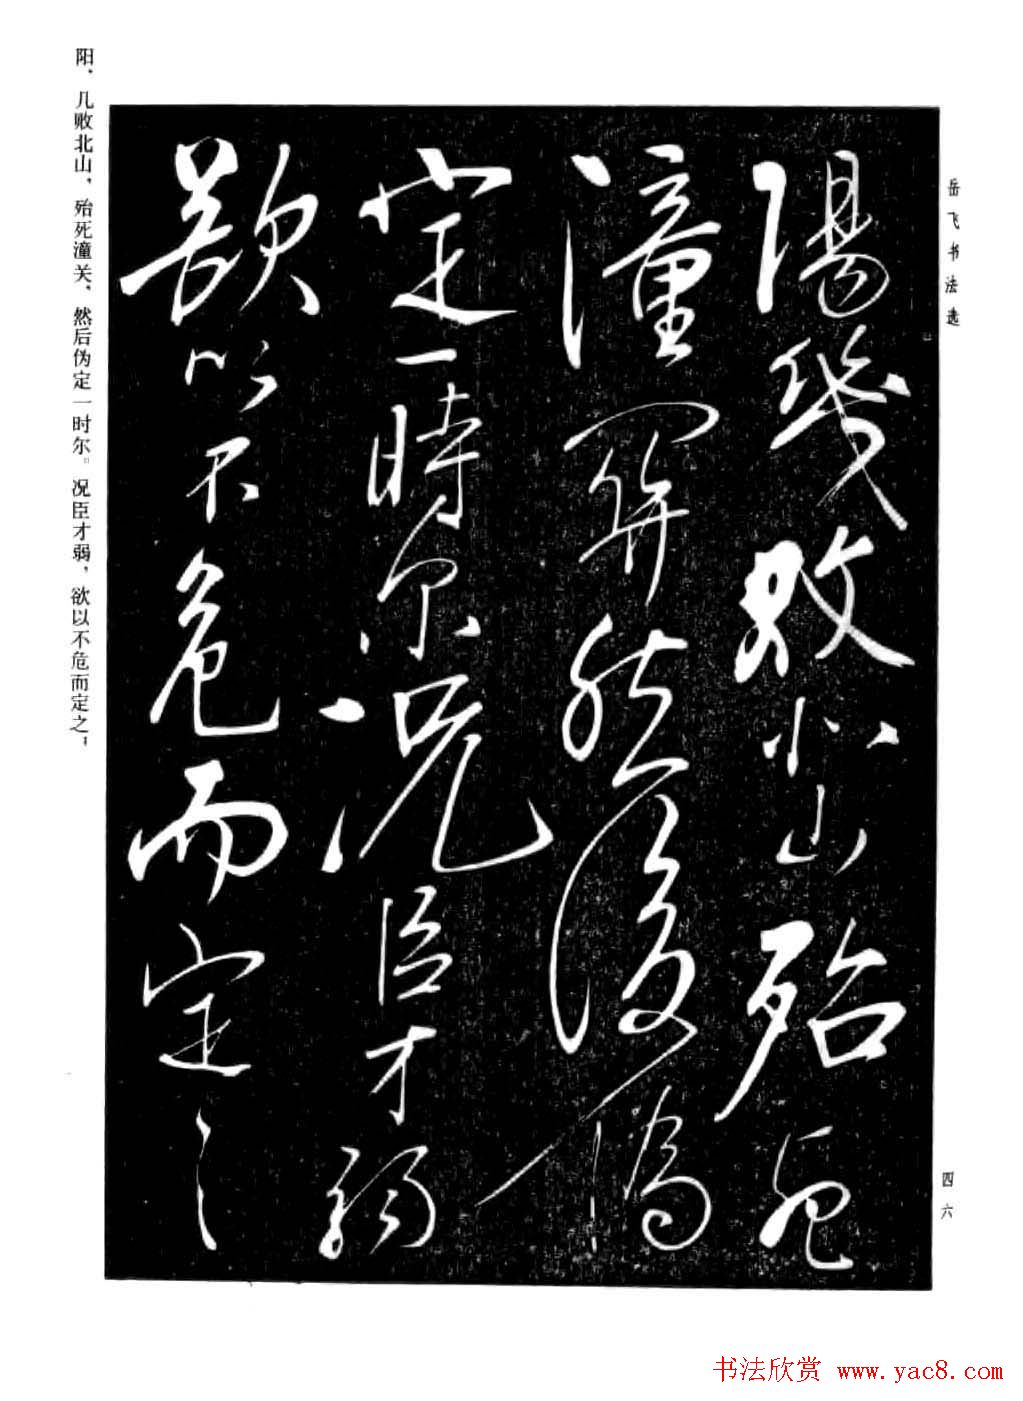 岳飞书法选
陽幾敗北山殆死
潼關然後偽
定一時尔況臣才弱
欲以不危而定之
四六
阳，几败北山，殆死潼关，然后伪定一时尔。况臣才弱，欲以不危而定之，
书法欣赏 www.yac8.com